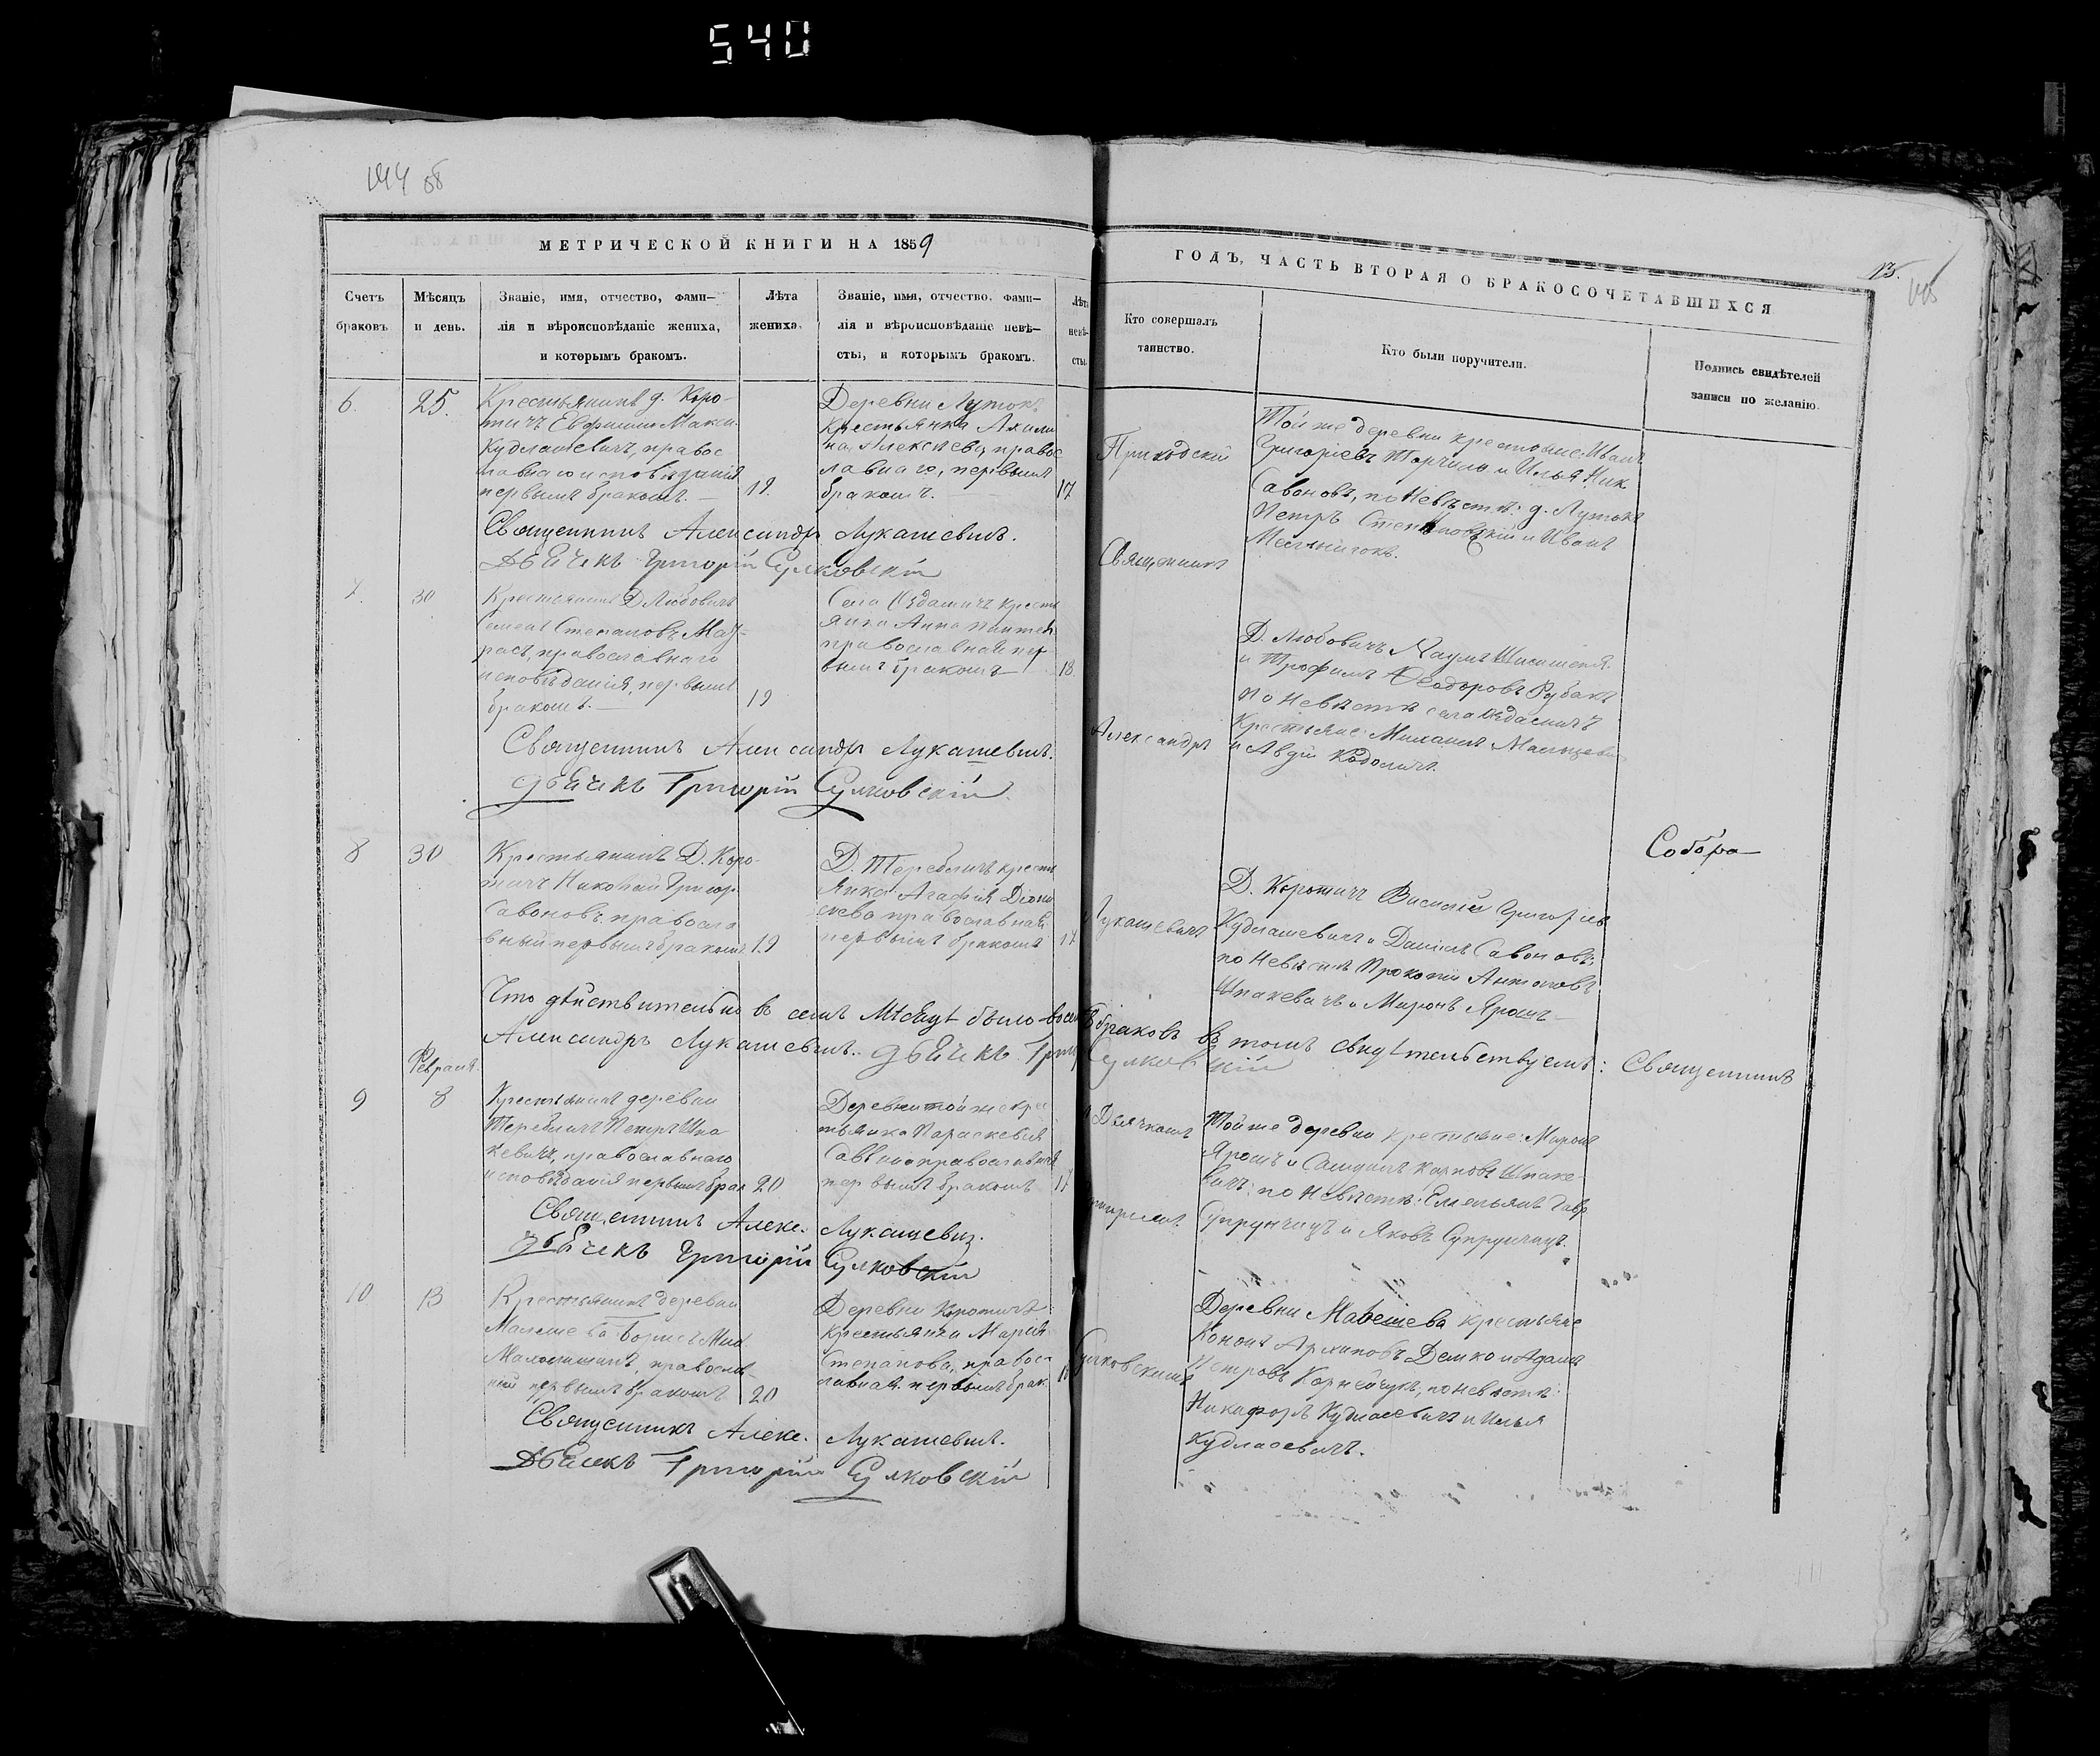 540
144 58
МЕТРИЧЕСКОЙ КНИГИ НА 1859
ГОДЪ, ЧАСТЬ ВТОРАЯ О БРАКОСОЧЕТАВШИХСЯ
13.
Счетъ
браковъ
Мѣсяцъ
и день.
Званіе, имя, отчество, фами-
лія и вѣроисповѣданіе жениха,
и которымъ бракомъ.
Лѣта
жениха.
Званіе, имя, отчество, фами-
лія и вѣроисповѣданіе невѣ-
сты, и которымъ бракомъ.
Лѣта
невѣ-
сты
Кто совершалъ
таинство.
Кто были поручители.
Подпись свидѣтелей
записи по желанію.
6.
25.
Крестьянинъ д. Коро-
тичъ Евфимій Макси.
Кудлашевичъ, правос
лавнаго исповѣданія
первымъ бракомъ.
19.
Деревни Лутокъ
крестьянка Акили
на Алексѣева, правос
лавнаго, первымъ
бракомъ.
17
Приходскій
Священникъ
Александръ
Лукашевичъ
Дьячкомъ
Сулковскимъ
Той же деревни крестьяне: Иванъ
Григоріевъ Торчило и Илья Ник.
Савоновъ, по Невѣстѣ: д. Лутокъ
Петръ и Иванъ
Мельниковъ.
Священникъ Александръ Лукашевичъ.
Дьячекъ Григорій Сулковскій
7.
30
Крестьянинъ Д. Любовичъ
Семенъ Степановъ
православнаго
исповѣданія, первымъ
бракомъ.
19
Села Оздамичъ кресть
янка Анна
православная пер
вымъ бракомъ
18.
Д. Любовичъ Наумъ
и Трофимъ Феодоровъ Рубанъ
по Невѣстѣ села Оздамичъ
Крестьяне: Михаилъ
и Авдій
Священникъ Александръ Лукашевичъ.
Дьячекъ Григорій Сулковскій.
8
30
Крестьянинъ Д. Коро-
тичъ Николай Григор.
Савоновъ, правосла
вный первымъ бракомъ
19
Д. Теребличъ кресть
янка Агафія Діони
сіева православная
первымъ бракомъ
17
Д. Коротичъ Василій Григоріев
Кудлашевичъ и Даніилъ Савоновъ;
по Невѣстѣ Прокопій Антоновъ
Шпакевичъ и Миронъ Ярошъ
Собора
Что дѣйствительно въ семъ Мѣсяцѣ было восемь браковъ въ томъ свидѣтельствуемъ: Священникъ
Александръ Лукашевичъ. Дьячекъ Григ Сулковскій
Февраля.
9
8
Крестьянинъ деревни
Теребличъ Петръ Шпа
кевичъ, православнаго
исповѣданія первымъ брак
20
Деревни той же крес
тьянка Параскевія
Саввина православная
первымъ бракомъ
17
Той же деревни крестьяне: Миронъ
Ярошъ и Самуилъ Карповъ Шпаке-
вичъ; по Невѣстѣ: Емельянъ Гавр.
Супрунчицъ и Яковъ Супрунчицъ.
Священникъ Алекс. Лукашевич.
Дьячекъ Григорій Сулковскій
10
13
Крестьянинъ деревни
Малешева Борисъ Мих.
православ-
ный первымъ бракомъ
20
Деревни Коротичъ
крестьянка Марія
Степанова, правос-
лавная первымъ брак.
Деревни Малешева крестьяне
Кононъ Архиповъ Демко и Адамъ
Петровъ Корнейчукъ; по невѣстѣ:
Никифоръ Кудлашевичъ и Илья
Кудлашевичъ.
Священникъ Алекс. Лукашевичъ.
Дьячекъ Григорій Сулковскій